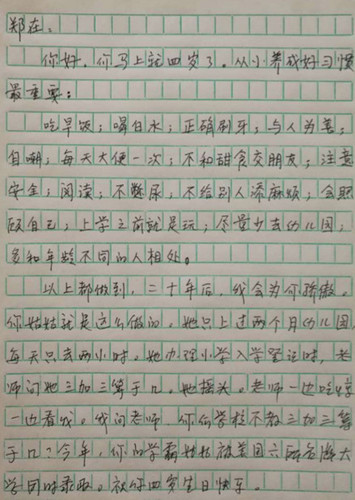 郑在:
你好。你马上就四岁了。从小养成好习惯
最重要:
吃早饭;喝白水;正确刷牙;与人为善;
自嘲;每天大便一次;不和甜食交朋友;注意
安全;阅读;不憋尿;不给别人添麻烦;会照
顾自己;上学之前就是玩;尽量少去幼儿园;
多和年龄不同的人相处。
以上都做到,二十年后,我会为你骄傲。
你姑姑就是这么做的。她只上过两个月幼儿园,
每天只去两小时。她办理小学入学登记时,老
师问她三加三等于几。她摇头。老师一边吃惊
一边看我。我问老师,你们学校不教三加三等
于几?今年,你的学霸姑姑被美国六所名牌大
学同时录取。祝你四岁生日快乐。